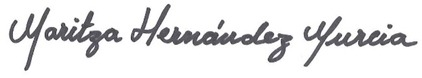 Maritza Hernández Murcia